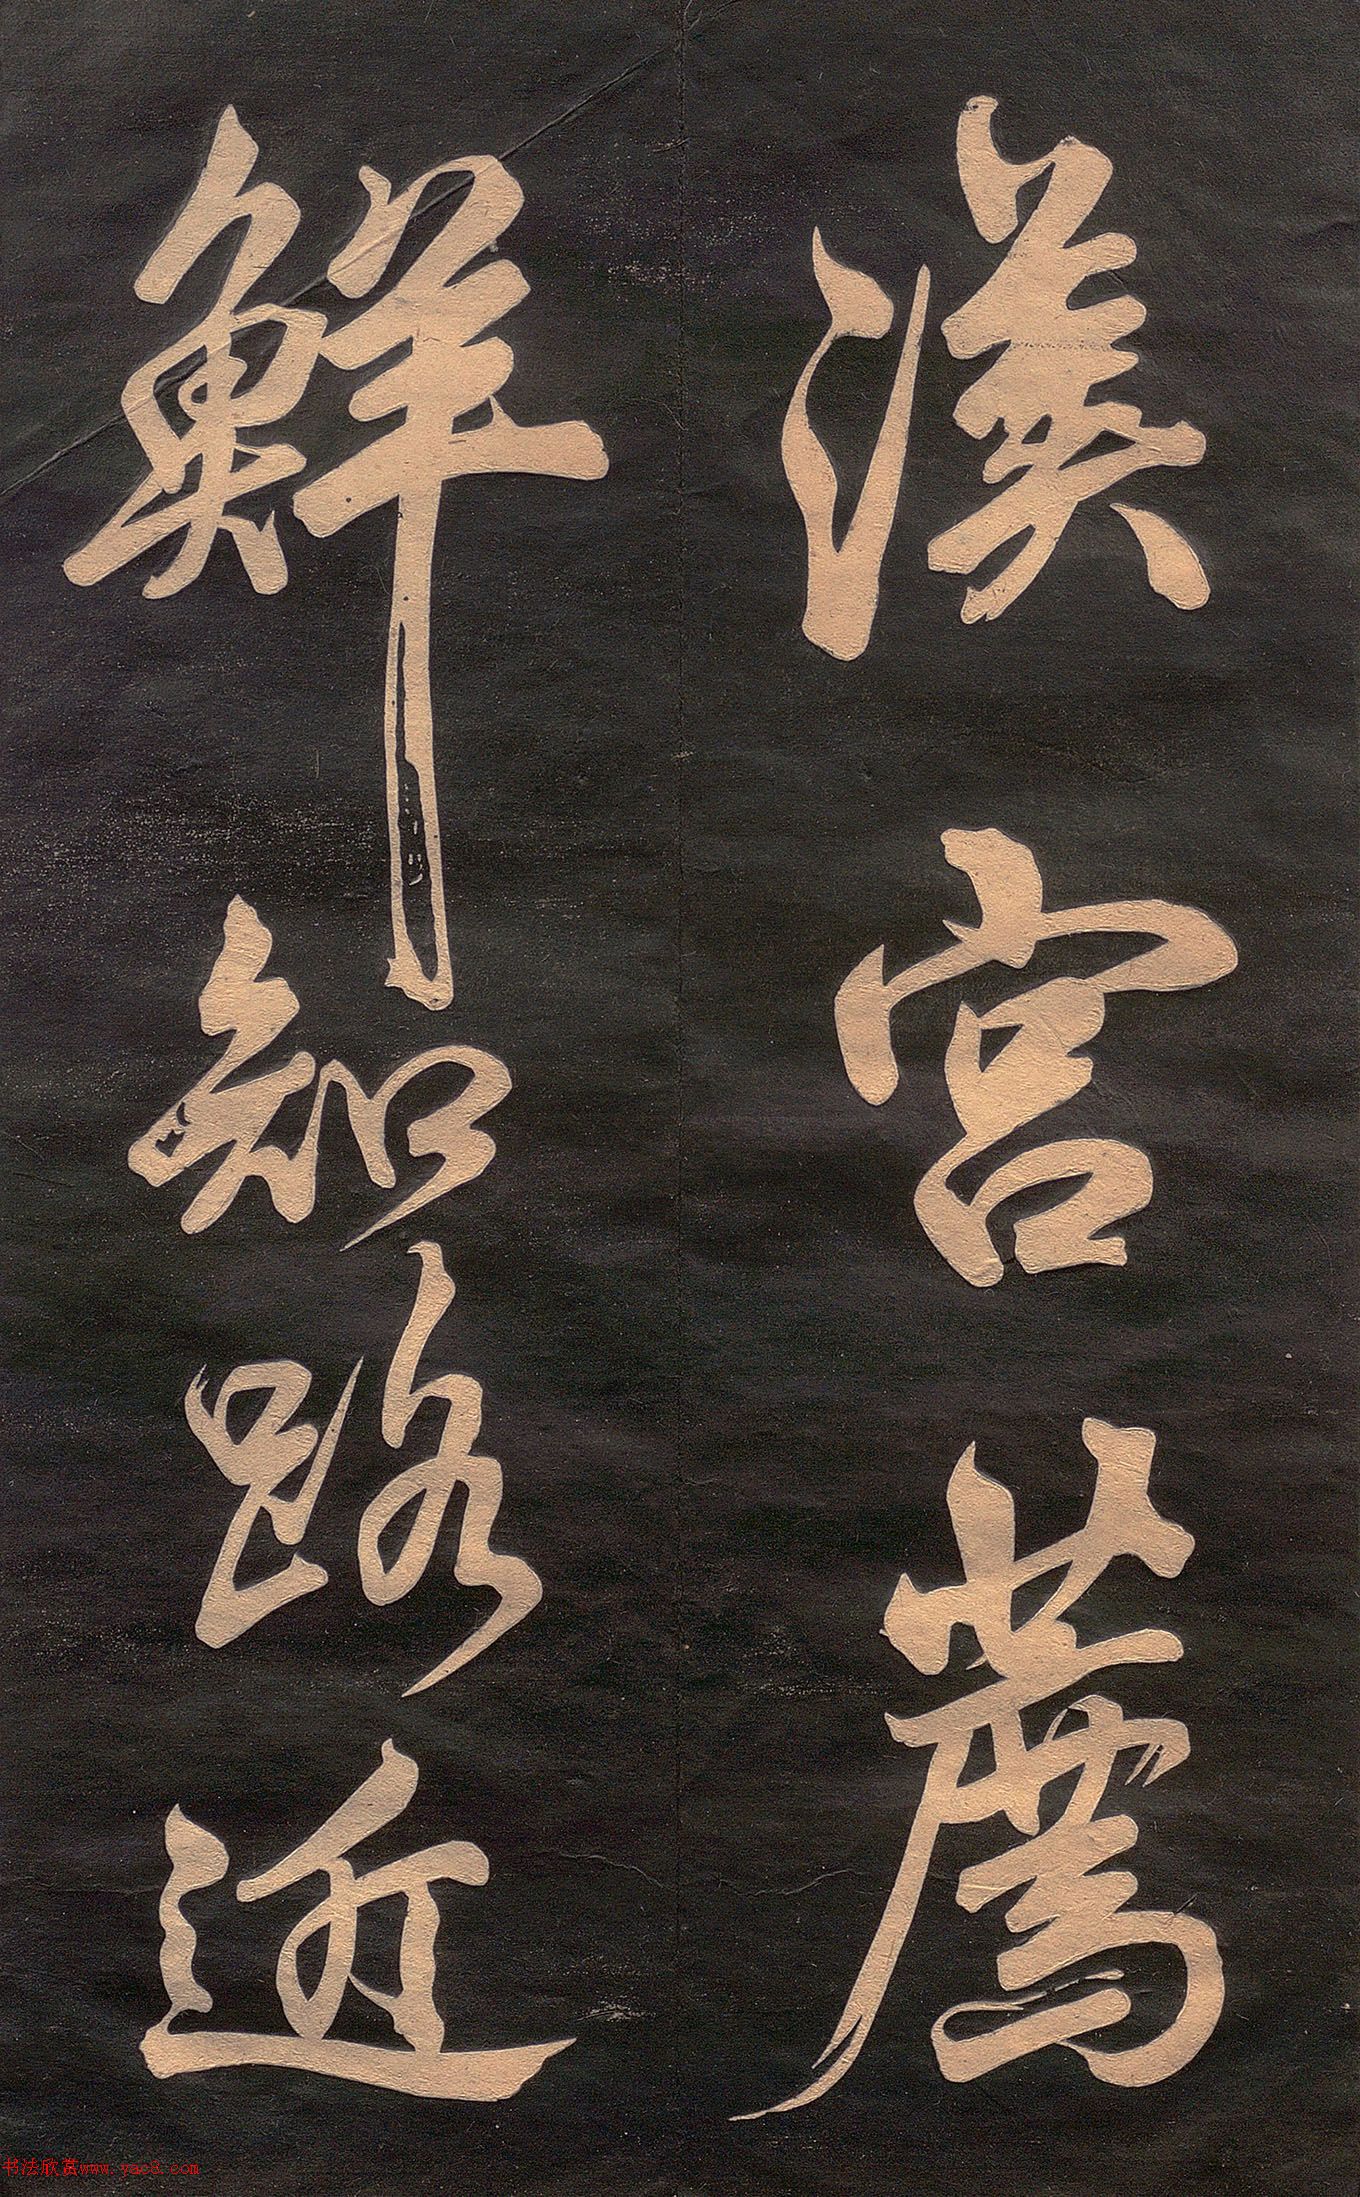 漢宮薦
鮮知路近
书法欣赏www.yac8.com